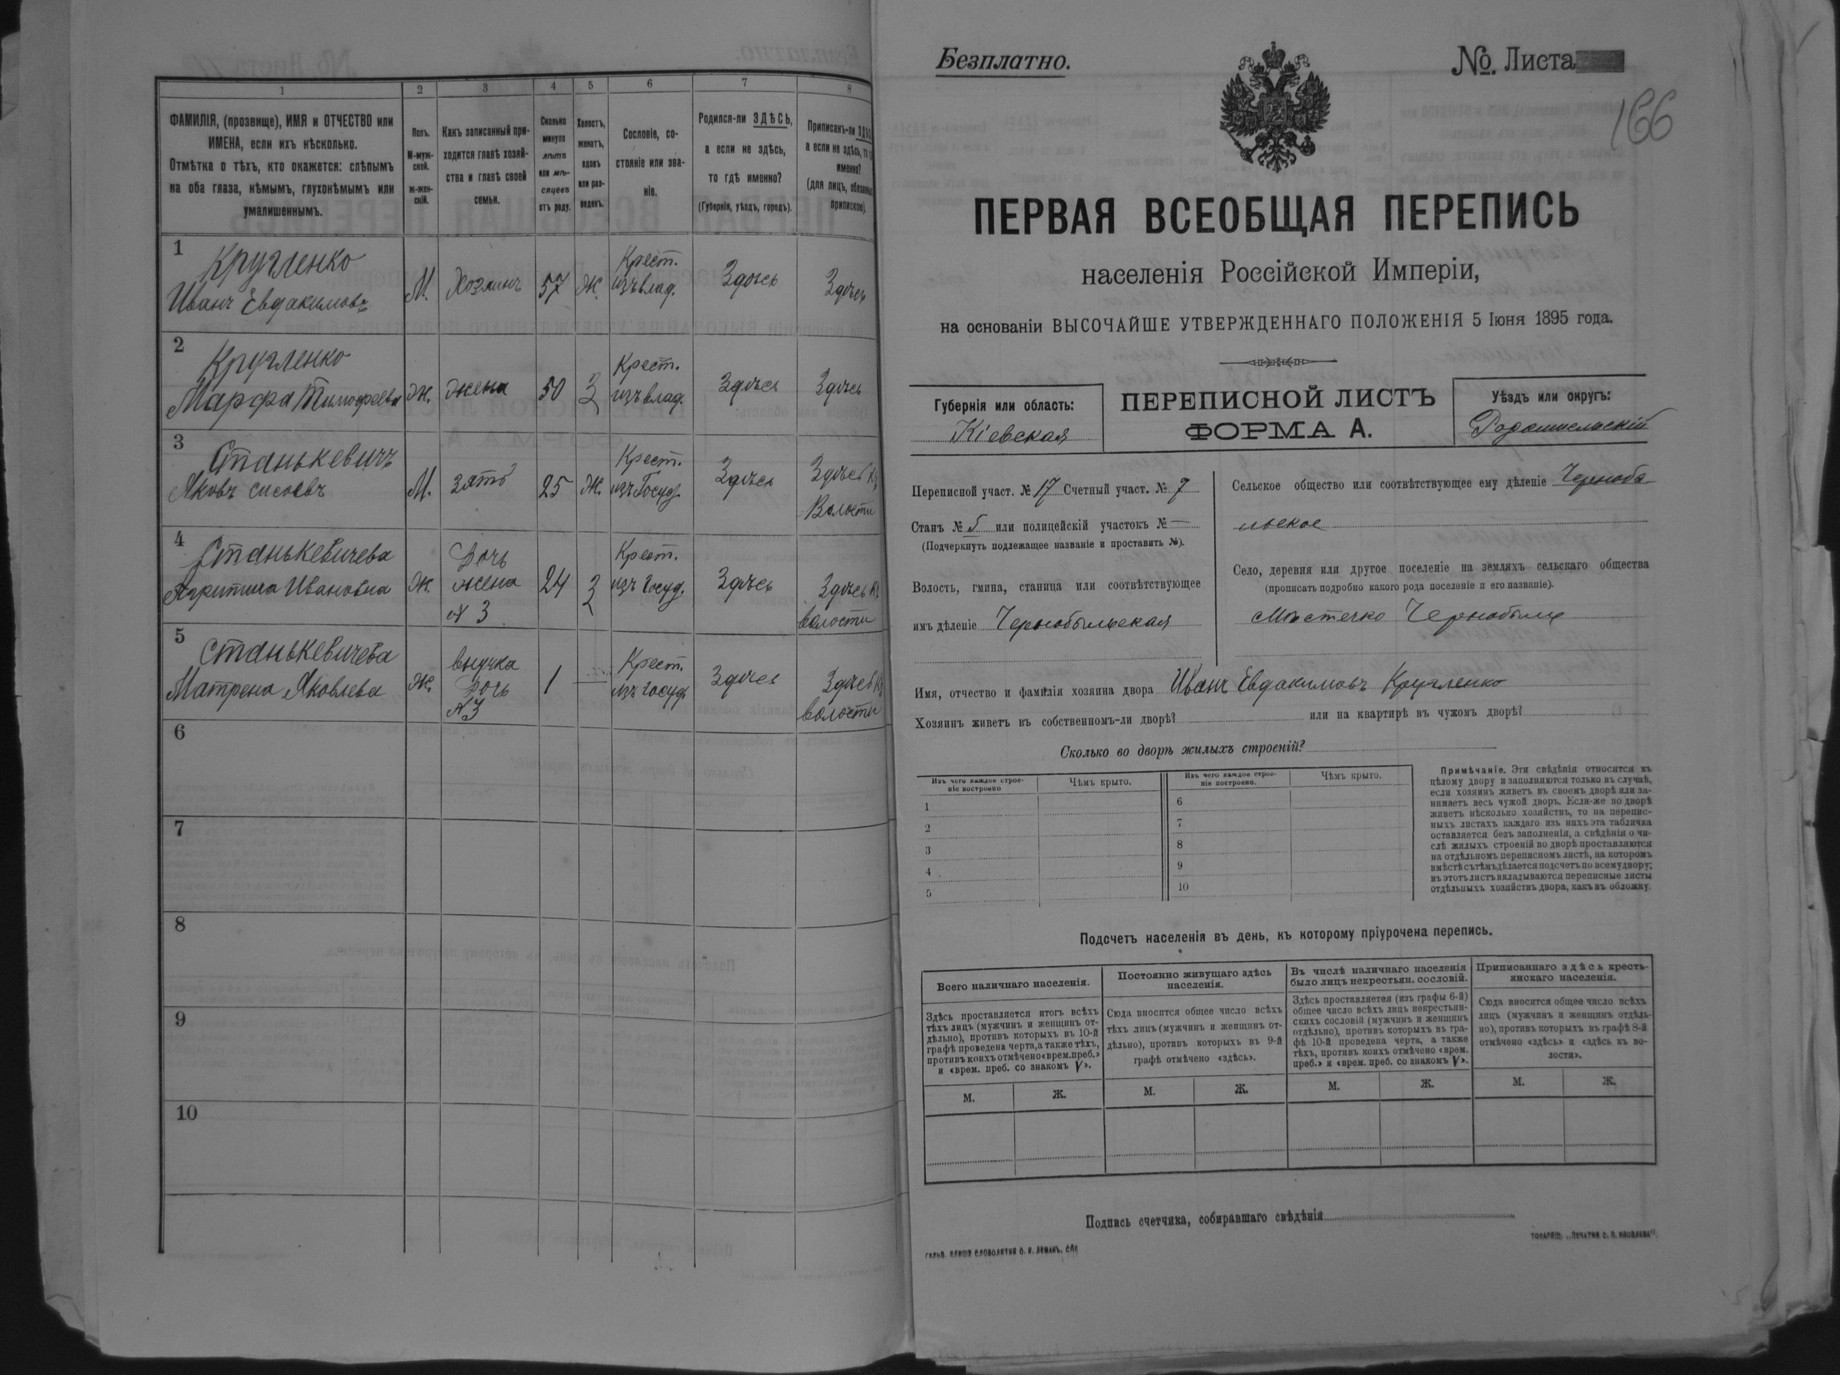 1 2 3 4 5 6 7 8
ФАМИЛІЯ, (прозвище), ИМЯ и ОТЧЕСТВО или
ИМЕНА, если ихъ нѣсколько.
Отмѣтка о тѣхъ, кто окажется: слѣпымъ
на оба глаза, нѣмымъ, глухонѣмымъ или
умалишеннымъ.
Полъ.
М-муж-
ской.
Ж-жен-
скій.
Какъ записанный при-
ходится главѣ хозяй-
ства и главѣ своей
семьи.
Сколько
минуло
лѣтъ
или мѣ-
сяцевъ
отъ роду.
Холостъ,
женатъ,
вдовъ
или раз-
веденъ.
Сословіе, со-
стояніе или зва-
ніе.
Родился-ли ЗДѢСЬ,
а если не здѣсь,
то гдѣ именно?
(Губернія, уѣздъ, городъ).
Приписанъ-ли ЗДѢСЬ,
а если не здѣсь, то гдѣ
именно?
(для лицъ, обязанныхъ
припиской).
1
Кругленко
Иванъ Евдакимовъ
М.
Хозяинъ
57
Ж.
Крест.
изъ влад.
Здѣсь
Здѣсь
2
Кругленко
Марфа Тимофеева
Ж.
жена
50
З
Крест.
изъ влад.
Здѣсь
Здѣсь
3
Станькевичъ
Яковъ Сисоевъ
М.
зять
25
Ж.
Крест.
изъ Госуд.
Здѣсь
Здѣсь въ
Волости
4
Станькевичева
Ивановна
Ж.
Дочь
жена
N 3
24
З
Крест.
изъ Госуд.
Здѣсь
Здѣсь въ
волости
5
Станькевичева
Матрена Яковлева
Ж.
внучка
Дочь
N 3
1
—
Крест.
изъ Госуд
Здѣсь
Здѣсь въ
волости
6
7
8
9
10
Безплатно.
№ Листа
166
ПЕРВАЯ ВСЕОБЩАЯ ПЕРЕПИСЬ
населенія Россійской Имперіи,
на основаніи ВЫСОЧАЙШЕ УТВЕРЖДЕННАГО ПОЛОЖЕНІЯ 5 Іюня 1895 года.
Губернія или область:
Кіевская
ПЕРЕПИСНОЙ ЛИСТЪ
ФОРМА А.
Уѣздъ или округъ:
Радомысльскій
Переписной участ. № 17 Счетный участ. № 7
Станъ № 5 или полицейскій участокъ № —
(Подчеркнуть подлежащее названіе и проставить №).
Волость, гмина, станица или соотвѣтствующее
имъ дѣленіе Чернобыльская
Сельское общество или соотвѣтствующее ему дѣленіе Чернобы
льское
Село, деревня или другое поселеніе на земляхъ сельскаго общества
(прописать подробно какого рода поселеніе и его названіе).
Мѣстечко Чернобыль
Имя, отчество и фамилія хозяина двора Иванъ Евдакимовъ Кругленко
Хозяинъ живетъ въ собственномъ-ли дворѣ? или на квартирѣ въ чужомъ дворѣ?
Сколько во дворѣ жилыхъ строеній?
Изъ чего каждое строе-
ніе построено
Чѣмъ крыто.
Изъ чего каждое строе-
ніе построено.
Чѣмъ крыто.
1
2
3
4
5
6
7
8
9
10
Примѣчаніе. Эти свѣдѣнія относятся къ
цѣлому двору и заполняются только въ случаѣ,
если хозяинъ живетъ въ своемъ дворѣ или за-
нимаетъ весь чужой дворъ. Если-же во дворѣ
живетъ нѣсколько хозяйствъ, то на перепис-
ныхъ листахъ каждаго изъ нихъ эта табличка
оставляется безъ заполненія, а свѣдѣнія о чи-
слѣ жилыхъ строеній во дворѣ проставляются
на отдѣльномъ переписномъ листѣ, на которомъ
вмѣстѣ съ тѣмъ дѣлается подсчетъ по всему двору;
въ этотъ листъ вкладываются переписные листы
отдѣльныхъ хозяйствъ двора, какъ въ обложку.
Подсчетъ населенія въ день, къ которому пріурочена перепись.
Всего наличнаго населенія.
Здѣсь проставляется итогъ всѣхъ
тѣхъ лицъ (мужчинъ и женщинъ от-
дѣльно), противъ которыхъ въ 10-й
графѣ проведена черта, а также тѣхъ,
противъ коихъ отмѣчено «врем. преб.»
и «врем. преб. со знакомъ V».
М. Ж.
Постоянно живущаго здѣсь
населенія.
Сюда вносится общее число всѣхъ
тѣхъ лицъ (мужчинъ и женщинъ от-
дѣльно), противъ которыхъ въ 9-й
графѣ отмѣчено «здѣсь».
М. Ж.
Въ числѣ наличнаго населенія
было лицъ некрестьян. сословій.
Здѣсь проставляется (изъ графы 6-й)
общее число всѣхъ лицъ некрестьян-
скихъ сословій (мужчинъ и женщинъ
отдѣльно), противъ которыхъ въ гра-
фѣ 10-й проведена черта, а также
тѣхъ, противъ коихъ отмѣчено «врем.
преб.» и «врем. преб. со знакомъ V».
М. Ж.
Приписаннаго здѣсь кресть-
янскаго населенія.
Сюда вносится общее число всѣхъ
лицъ (мужчинъ и женщинъ отдѣль-
но), противъ которыхъ въ графѣ 8-й
отмѣчено «здѣсь» и «здѣсь въ во-
лости».
М. Ж.
Подпись счетчика, собиравшаго свѣдѣнія